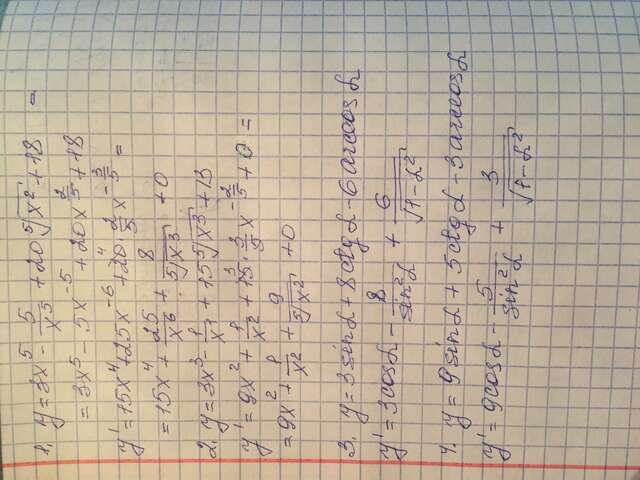 1. y = 3x⁵ - 5/x⁵ + 20 ⁵√x² + 18 =
= 3x⁵ - 5x⁻⁵ + 20x^(2/5) + 18
y' = 15x⁴ + 25x⁻⁶ + 20 · 2/5 x^(-3/5) =
= 15x⁴ + 25/x⁶ + 8/⁵√x³ + 0
2. y = 3x³ - 1/x + 15 ⁵√x³ + 13
y' = 9x² + 1/x² + 15 · 3/5 x^(-2/5) + 0 =
= 9x² + 1/x² + 9/⁵√x² + 0
3. y = 3 sin α + 8 ctg α - 6 arccos α
y' = 3 cos α - 8/sin² α + 6/√(1-α²)
4. y = 9 sin α + 5 ctg α - 3 arccos α
y' = 9 cos α - 5/sin² α + 3/√(1-α²)